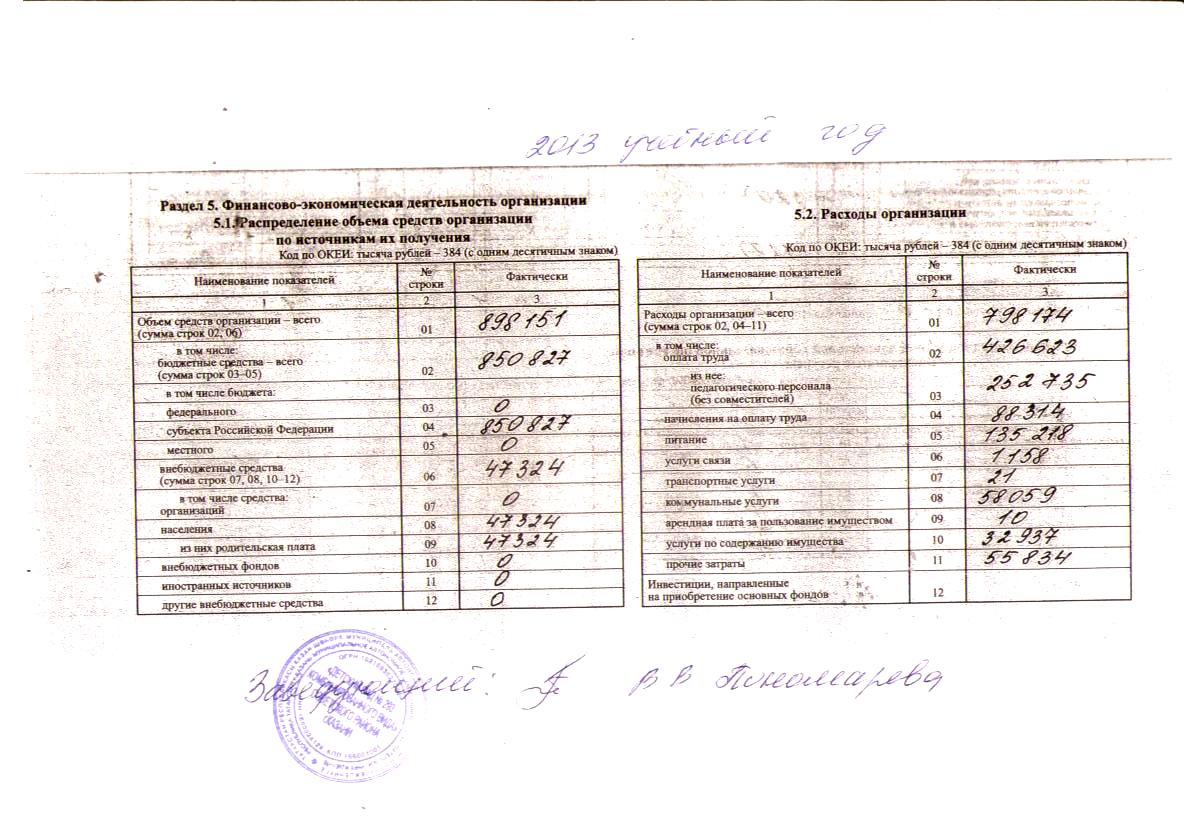 2013 учебный год
Раздел 5. Финансово-экономическая деятельность организации
5.1. Распределение объема средств организации
по источникам их получения
Код по ОКЕИ: тысяча рублей – 384 (с одним десятичным знаком)
Наименование показателей № строки Фактически
1 2 3
Объем средств организации – всего
(сумма строк 02, 06) 01 898 151
в том числе:
бюджетные средства – всего
(сумма строк 03–05) 02 850 827
в том числе бюджета:
федерального 03 0
субъекта Российской Федерации 04 850 827
местного 05 0
внебюджетные средства
(сумма строк 07, 08, 10–12) 06 47 324
в том числе средства:
организаций 07 0
населения 08 47 324
из них родительская плата 09 47 324
внебюджетных фондов 10 0
иностранных источников 11 0
другие внебюджетные средства 12 0
5.2. Расходы организации
Код по ОКЕИ: тысяча рублей – 384 (с одним десятичным знаком)
Наименование показателей № строки Фактически
1 2 3
Расходы организации – всего
(сумма строк 02, 04–11) 01 798 174
в том числе:
оплата труда 02 426 623
из нее:
педагогического персонала
(без совместителей) 03 252 735
начисления на оплату труда 04 88 314
питание 05 135 218
услуги связи 06 1 158
транспортные услуги 07 21
коммунальные услуги 08 58 059
арендная плата за пользование имуществом 09 10
услуги по содержанию имущества 10 32 937
прочие затраты 11 55 834
Инвестиции, направленные
на приобретение основных фондов 12
Заведующий: В В Пономарева